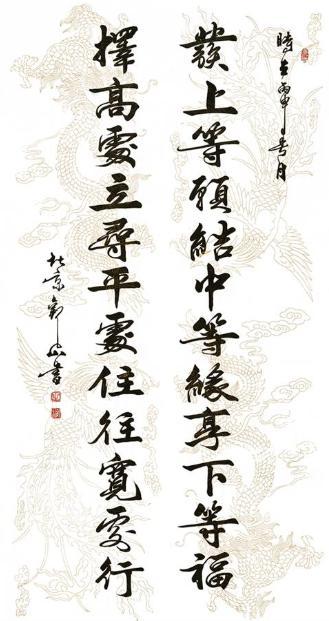 時在丙申春月
發上等願結中等緣享下等福
擇高處立尋平處住往寬處行
北京
書